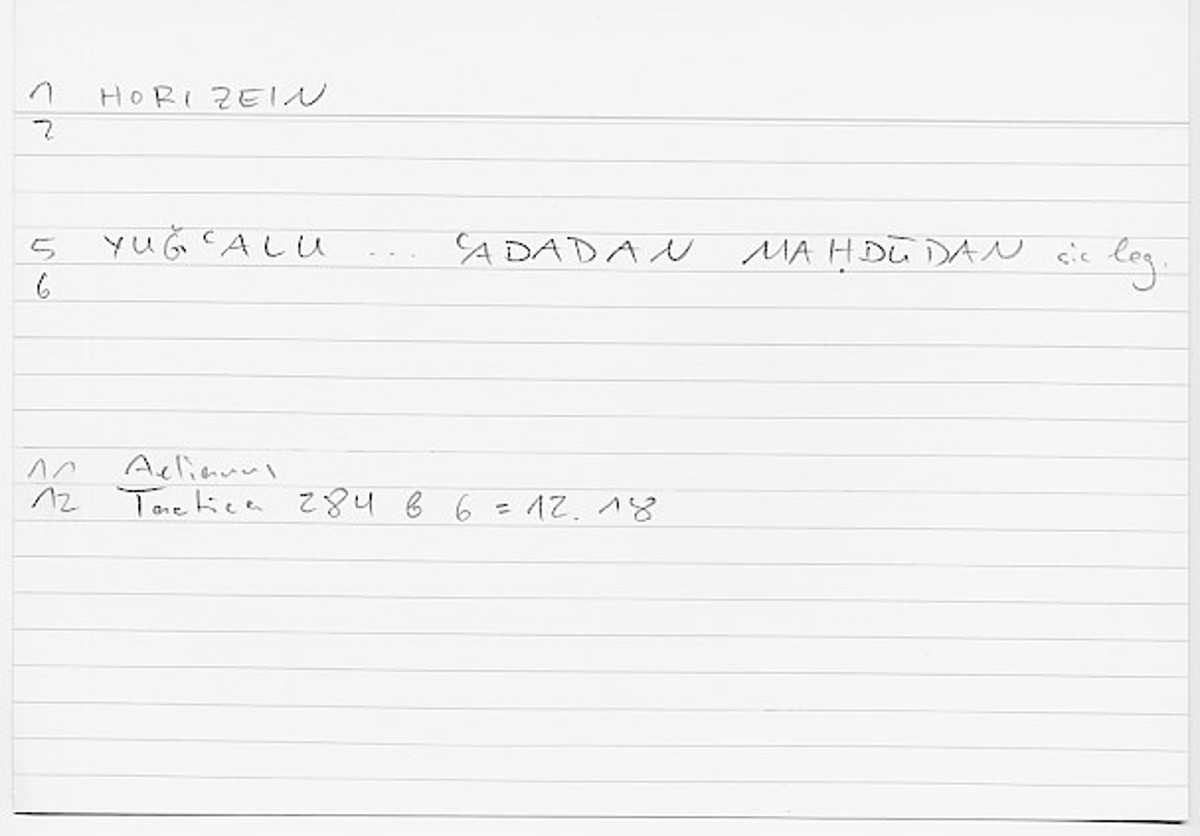 1 HORIZEIN
2
5 YUĞʿALU ... ʿADADAN MAḤDŪDAN sic leg.
6
11 Aelianus
12 Tactica 284 B 6 = 12. 18